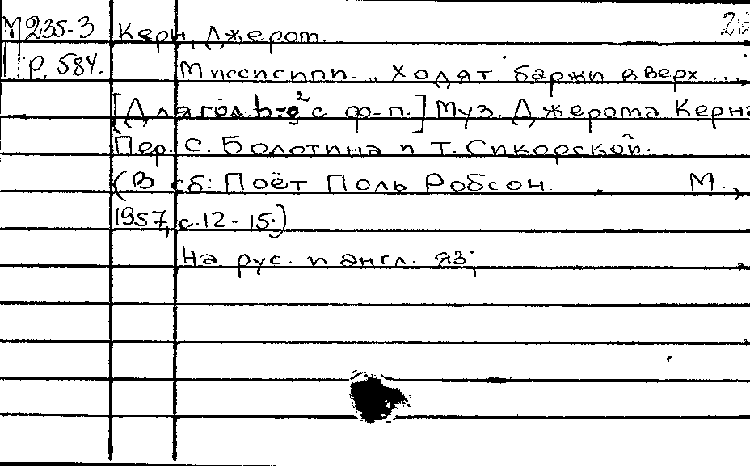 М 235-3 Керн, Джером.
р. 584. Миссисипи. „Ходят баржи вверх...
[Для гол. h-e² с ф-п.] Муз. Джерома Керна
Пер. С. Болотина и Т. Сикорской.
(В сб: Поёт Поль Робсон. М.,
1957, с. 12-15.)
На рус. и англ. яз.